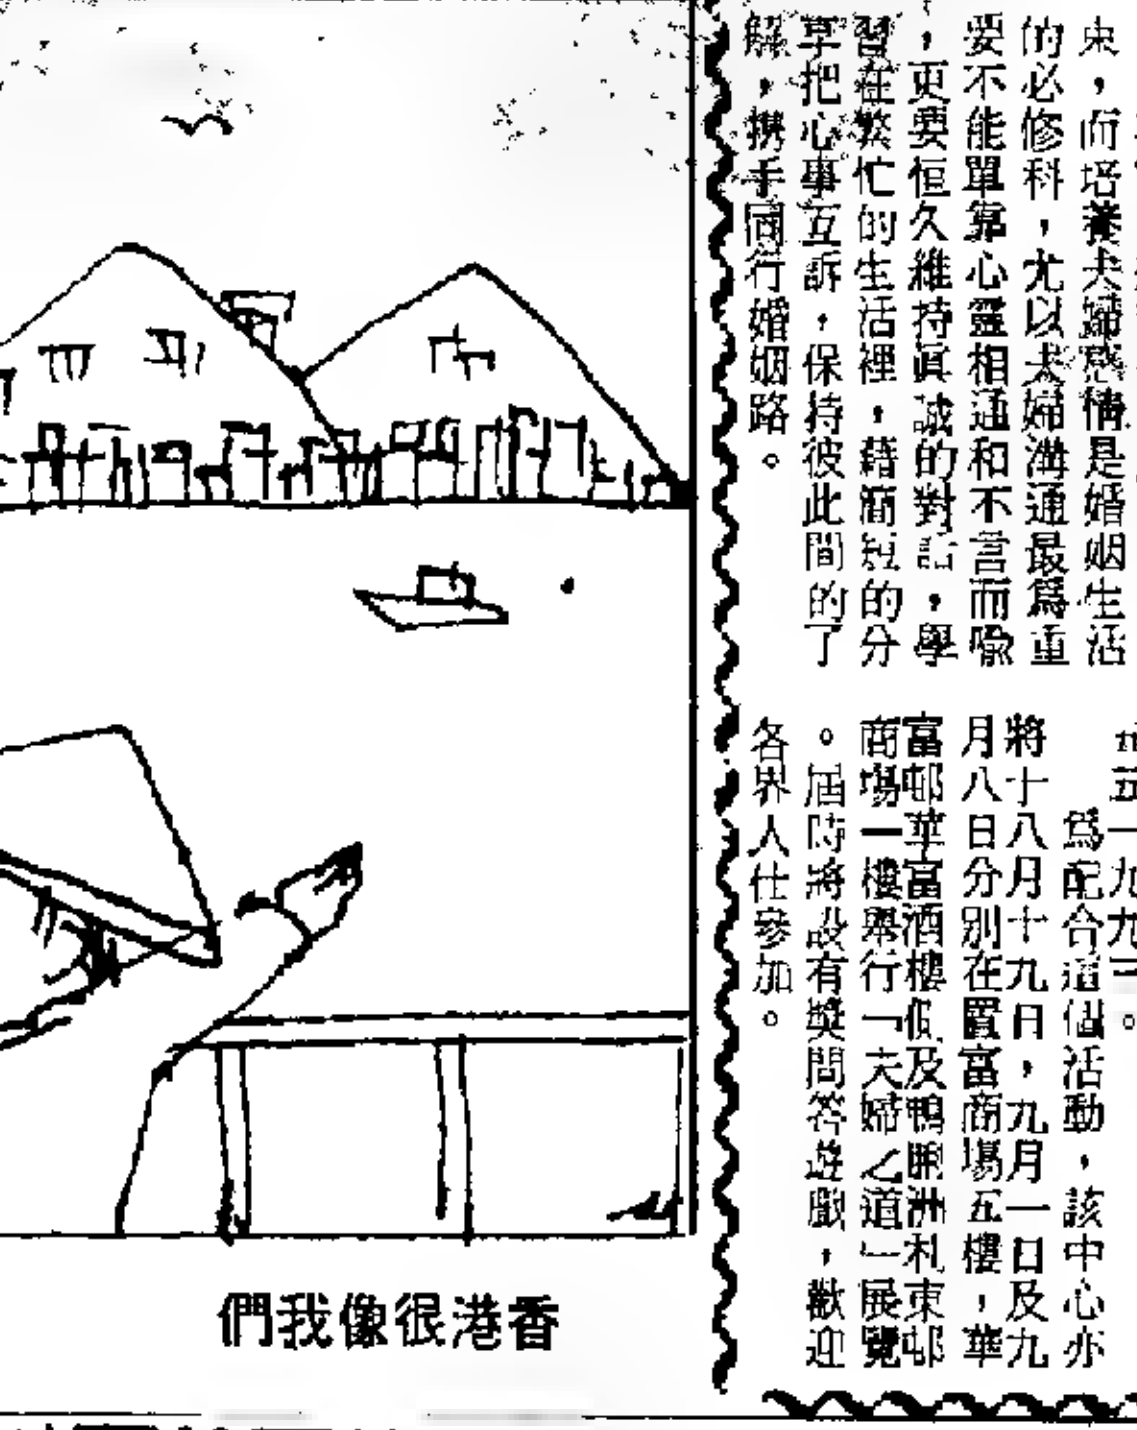 束，而培養夫婦感情是婚姻生活
的必修科，尤以夫婦溝通最為重
要不能單靠心靈相通和不言而喻
，更要恒久維持眞誠的對話，學
習在繁忙的生活裡，藉簡短的分
享把心事互訴，保持彼此間的了
解，携手同行婚姻路。
五一九九三。
為配合這個活動，該中心亦
將十八月十九日，九月一日及九
月八日分別在置富商場五樓，華
富邨華富酒樓側及鴨脷洲利東邨
商場一樓舉行「夫婦之道」展覽
。屆時將設有獎問答遊戲，歡迎
各界人仕參加。
香港很像我們